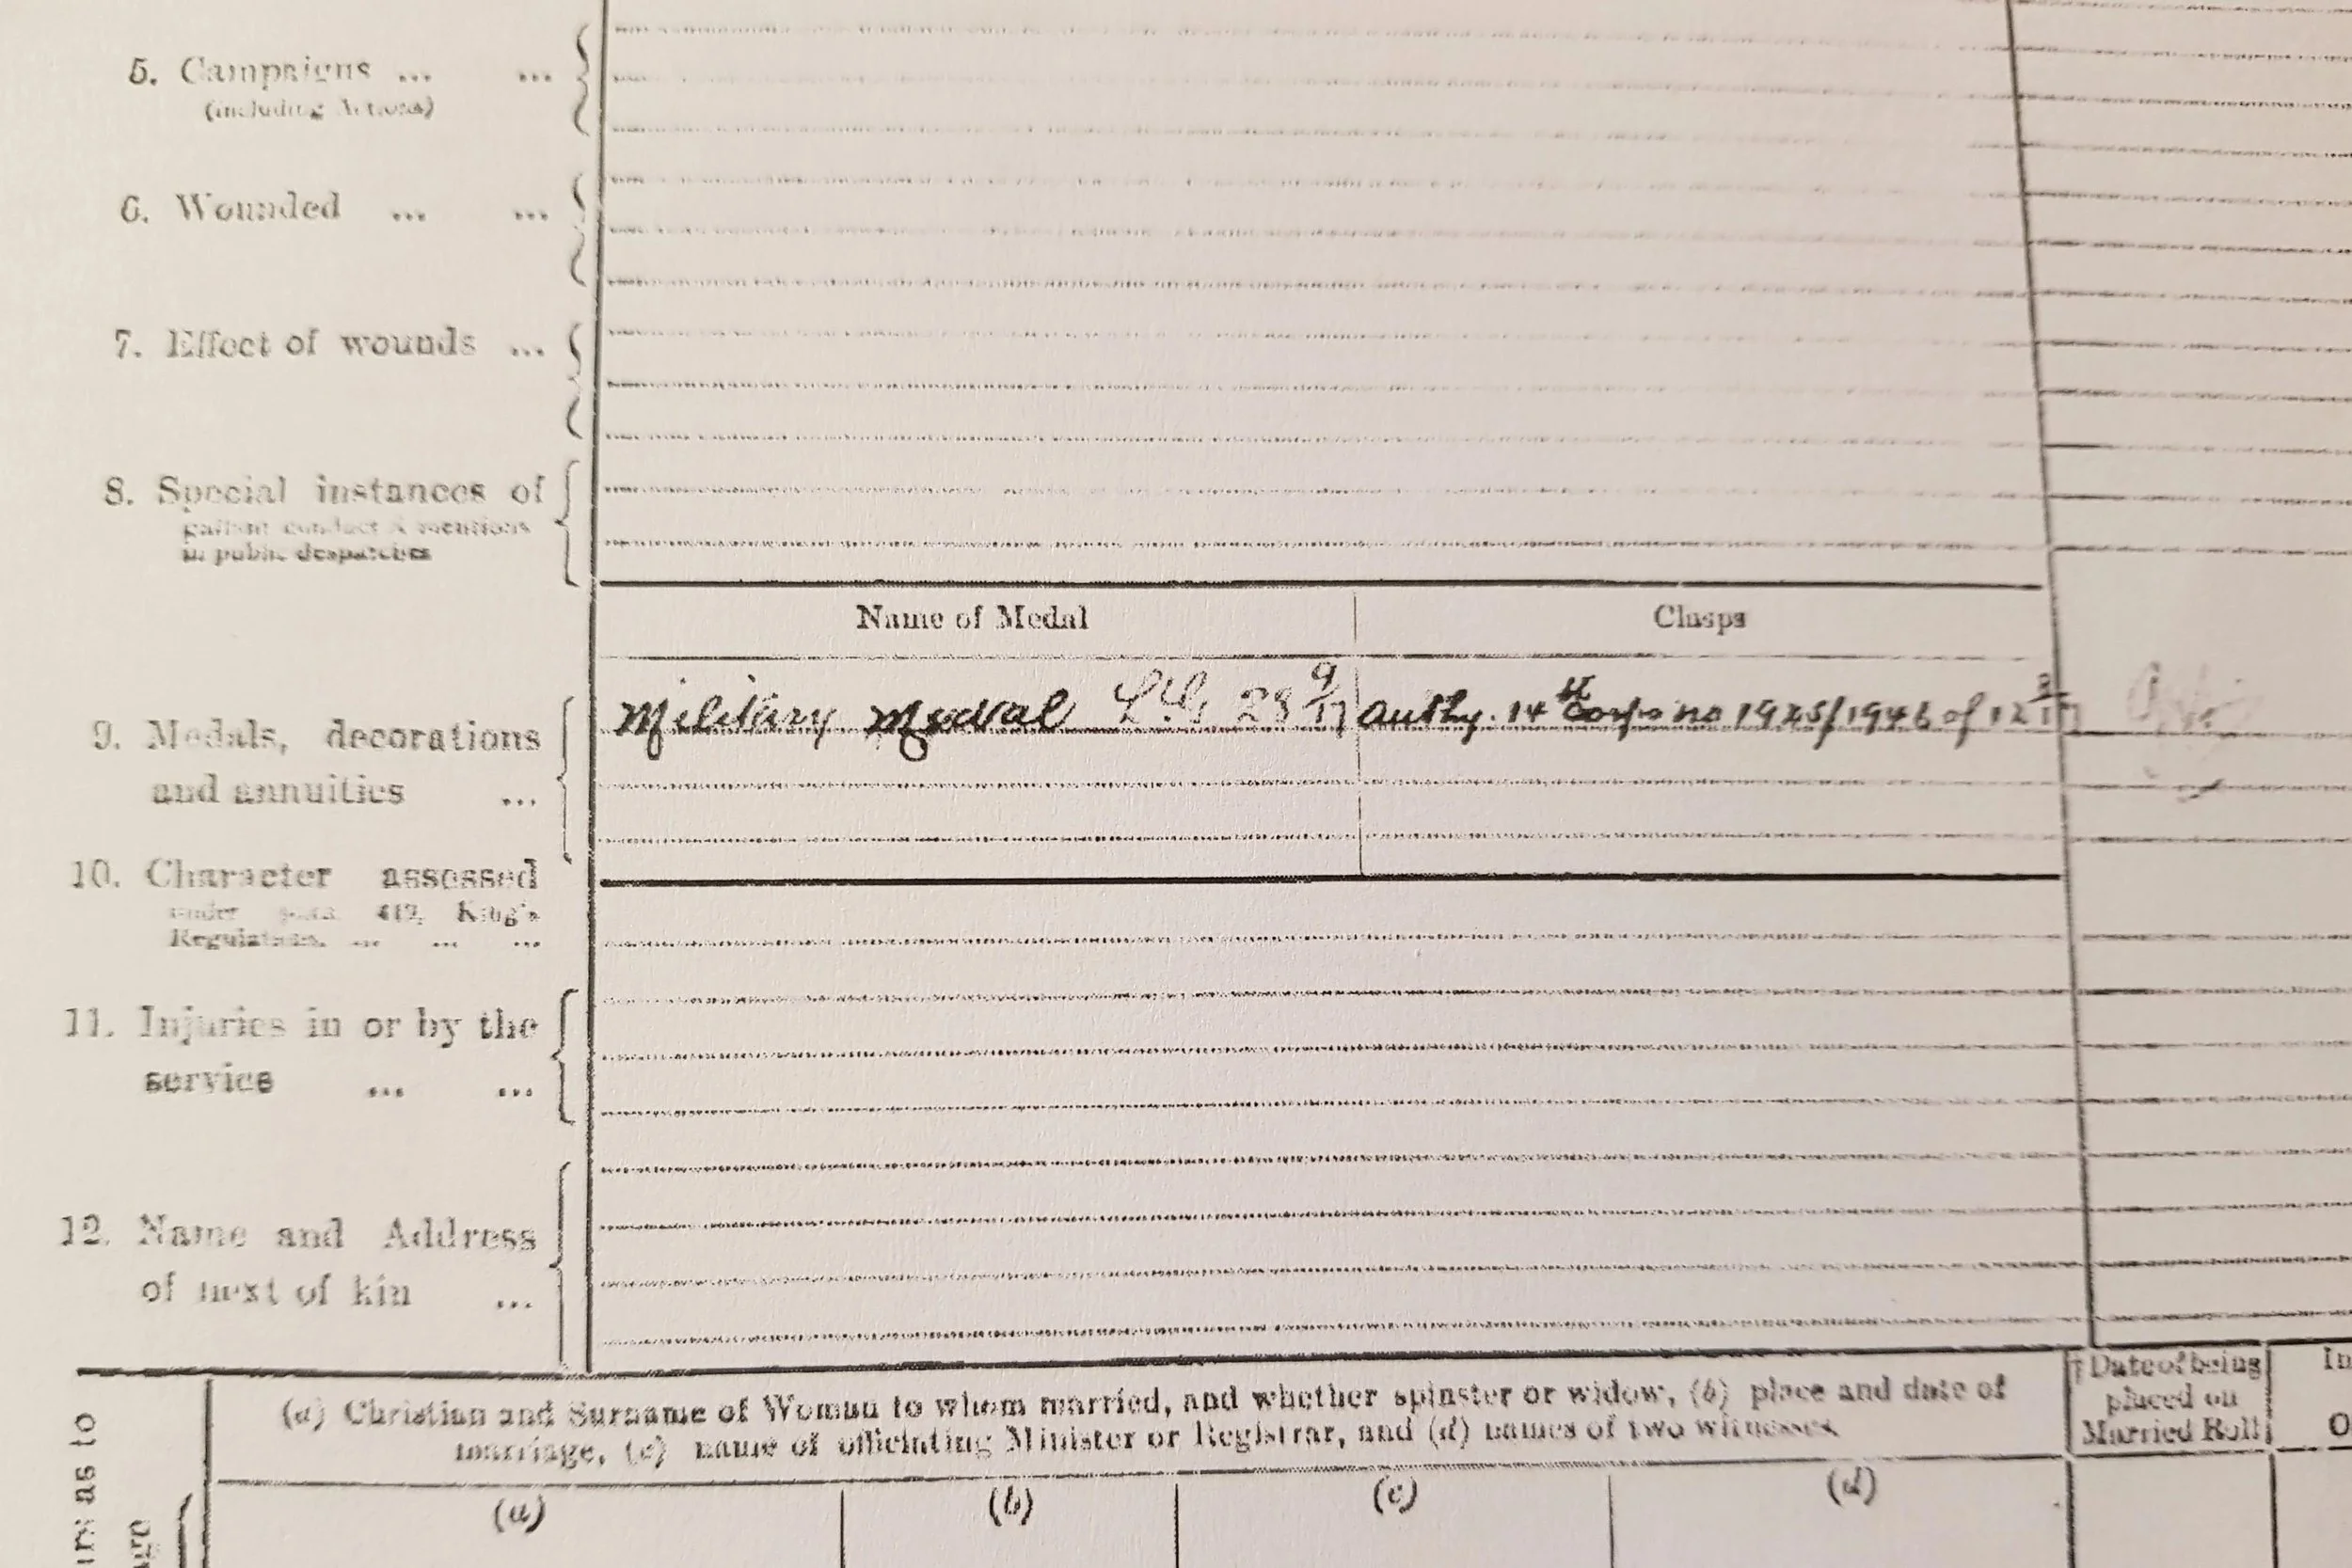 5. Campaigns ... ...
(including Actions)
6. Wounded ... ...
7. Effect of wounds ...
8. Special instances of
gallant conduct & mentions
in public despatches
Name of Medal Clasps
Military Medal 28 9/17 Authy. 14th Corps no 1925/1946 of 12
9. Medals, decorations
and annuities ...
10. Character assessed
under para. 419, King's
Regulations. ... ... ...
11. Injuries in or by the
service ... ...
12. Name and Address
of next of kin ...
(a) Christian and Surname of Woman to whom married, and whether spinster or widow, (b) place and date of
marriage, (c) name of officiating Minister or Registrar, and (d) names of two witnesses
†Date of being
placed on
Married Roll
(a) (b) (c) (d)
as to